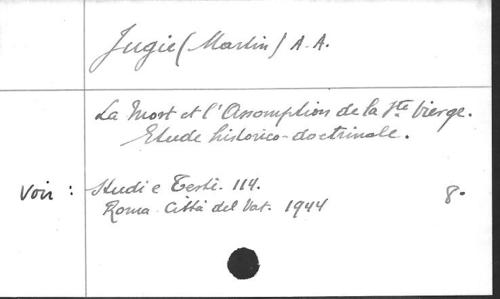 Jugie (Martin) A.A.
La Mort et l'Assomption de la Ste Vierge.
Etude historico-doctrinale.
Voir : Studi e Testi. 114.
Roma Città del Vat. 1944 8°